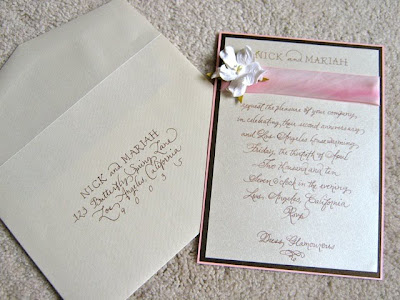 NICK and MARIAH
123 Butterfly Spring Lane
Los Angeles, California
90055
NICK and MARIAH
request the pleasure of your company,
in celebrating their second anniversary
and Los Angeles Housewarming,
Friday, the thirtieth of April
Two thousand and ten
Seven o'clock in the evening,
Los Angeles, California
Rsvp
Dress Glamourous